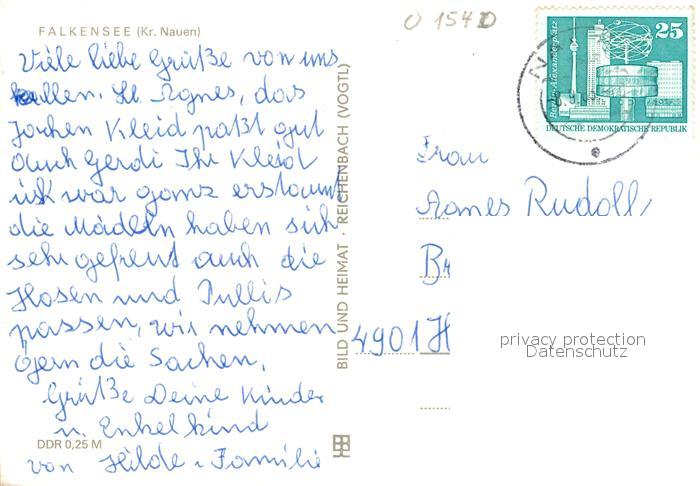 FALKENSEE (Kr. Nauen)
Viele liebe Grüße von uns
allen. Lb Agnes, das
Jochen Kleid paßt gut
auch Gerdi Ihr Kleid
ist war ganz erstaunt
die Mädeln haben sich
sehr gefreut auch die
Hosen und Pullis
passen, wir nehmen
gern die Sachen.
Grüße Deine Kinder
u. Enkelkind
DDR 0,25 M
von Hilde u Familie
BILD UND HEIMAT · REICHENBACH (VOGTL)
O 154 D
25
Berlin, Alexanderplatz
DEUTSCHE DEMOKRATISCHE REPUBLIK
Frau
Agnes Rudolf
4901 H
privacy protection
Datenschutz